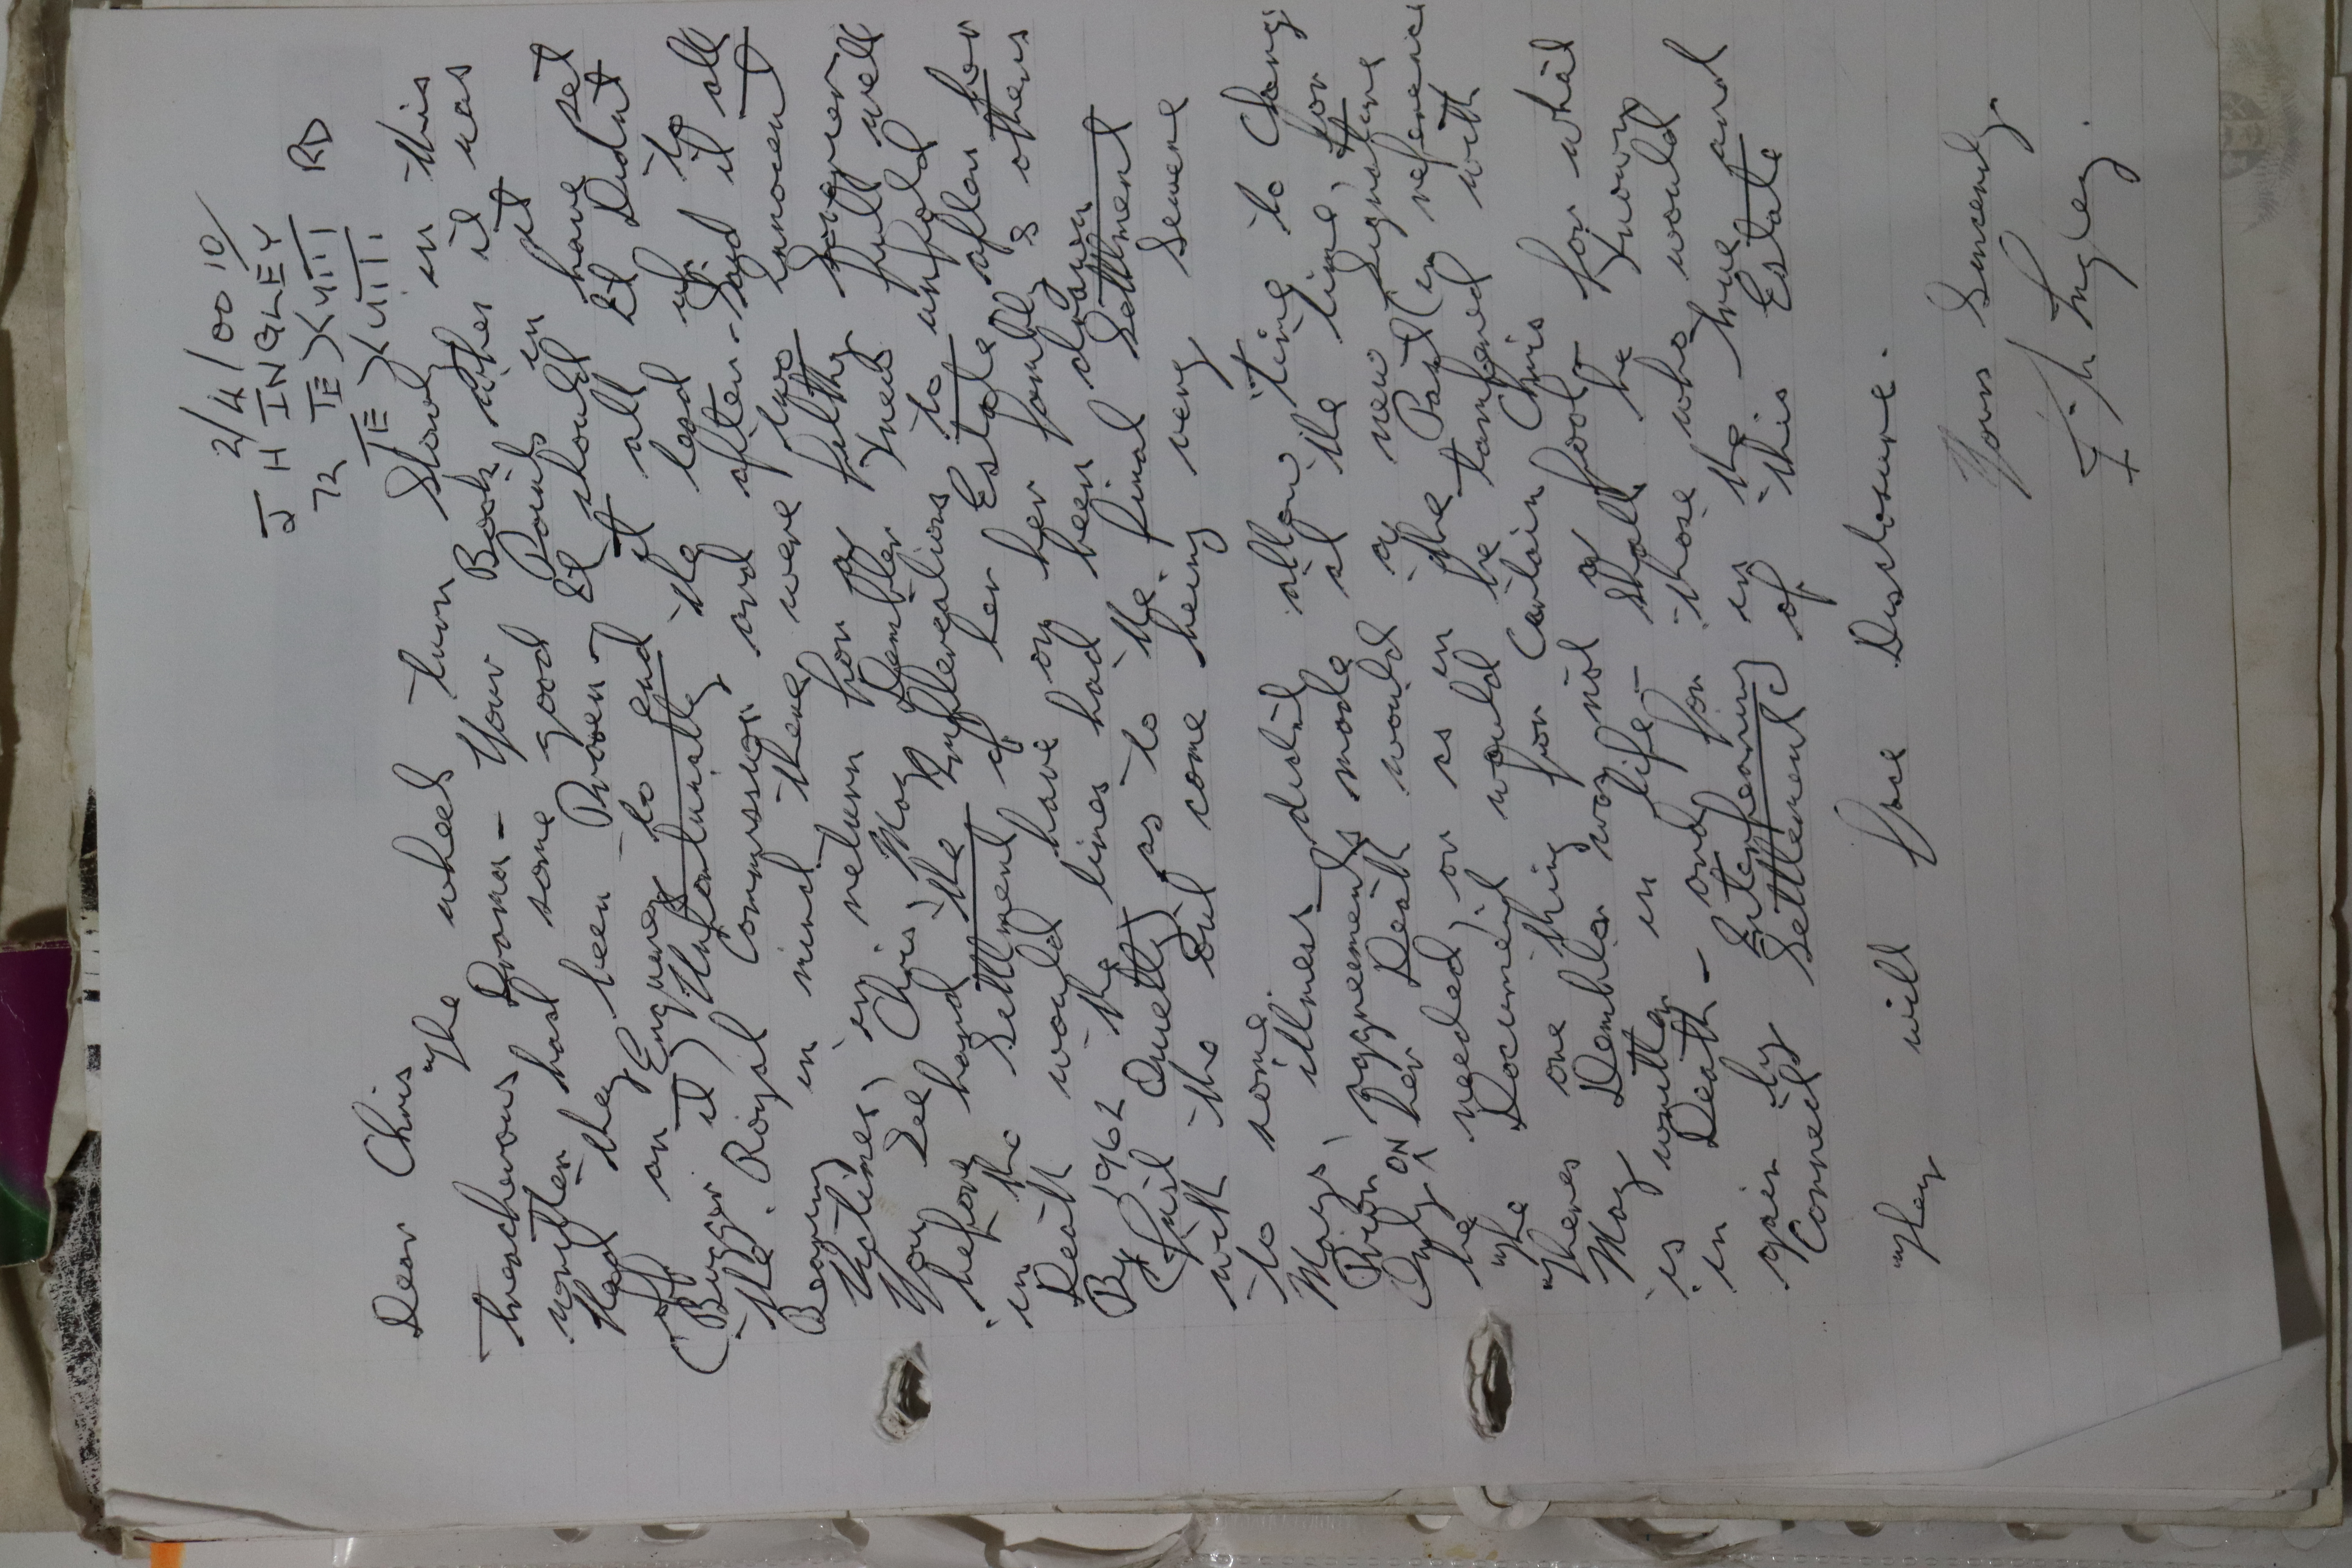 2/4/00 10/
J H INGLEY
72 TE XVIII RD
TE XVIII
Dear Chris
The wheel turn Slowly in this
treacherous Drama - Your Book when it was
written had some good Points in it
Had they been Proven - It should have set
off an Enquirey to end it all It Didnt
(Bugger it) Unfortunatley the lead up to
the Royal Commission and after - Sayd it all
Bearing in mind there were two innocent
Victims, in return for a filthy
You See Chris, May Dembler Knew full well
before hand the Ramflercations to unfold
in the Settlment of her Estate aflon her
Death would have on her family & others
By 1962 the lines had been drawn
(Quil Quetly) as to the final Settlment
with the Out come being very Severe
to some.
Mays illness didnt allow time to Change
Prior Aggreements made at the time, for
Only ON her Death would a new Signature
be needed, or as in the Past (in reference
The Document would be tampered with
Theres one thing for Certain Chris
May Dembler was not a fool - for what
is written in life - shall be Known
in Death - and for those who would
gain by Enterfearing in the true and
Correct Settlement of this Estate
They will face Disclosure.
Yours Sincerely
J. h Ingley.